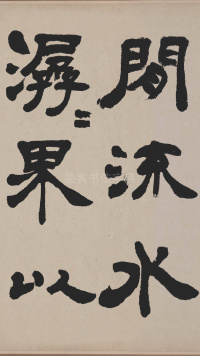 閒流水
潺〻果以